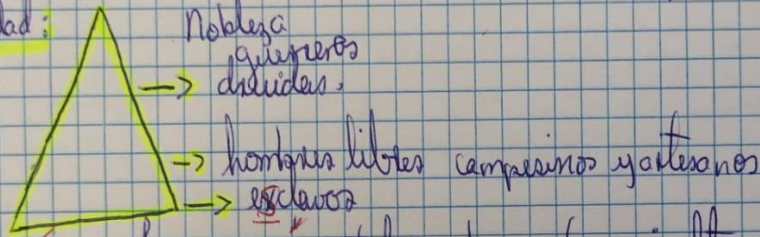 dad:
Nobleza
guerreros
druidas.
hombres libres campesinos y artesanos
esclavos